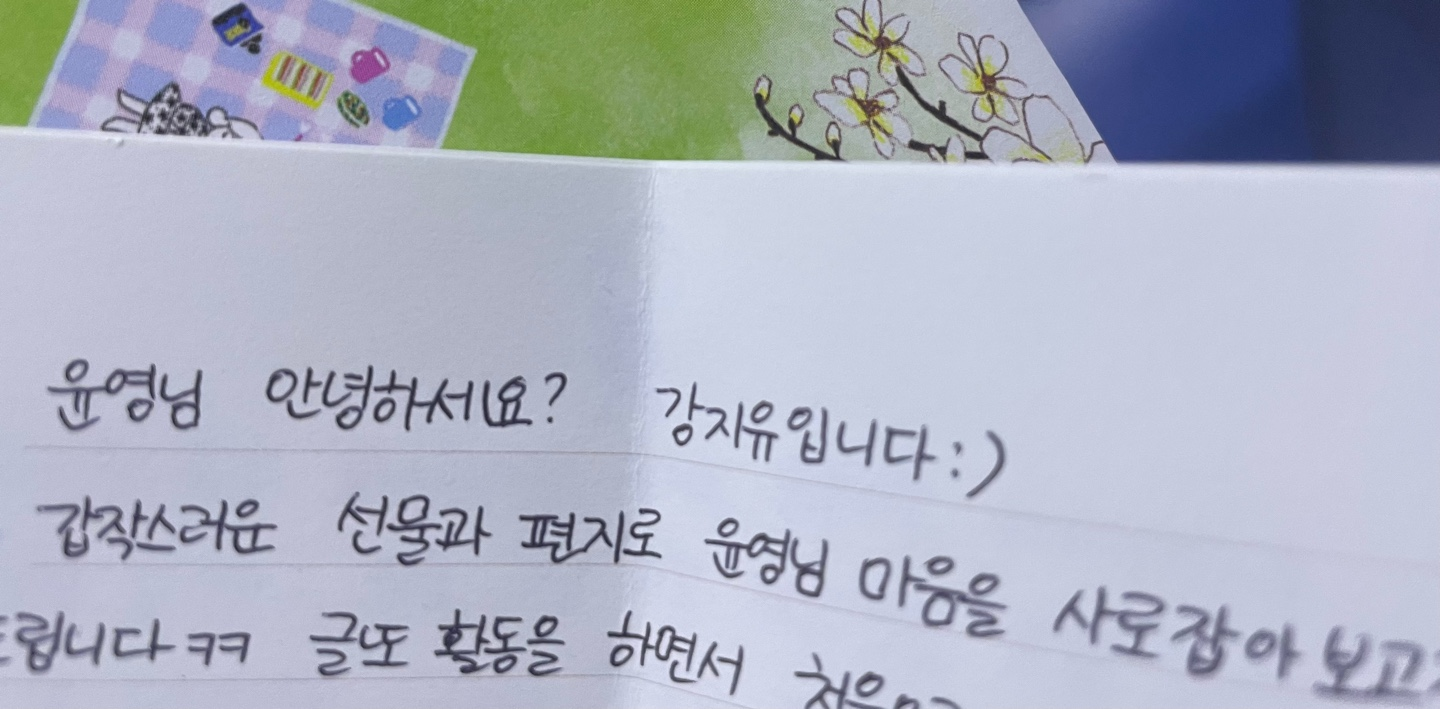 윤영님 안녕하세요? 강지유입니다:)
갑작스러운 선물과 편지로 윤영님 마음을 사로잡아 보고
드립니다ㅋㅋ 글노 활동을 하면서